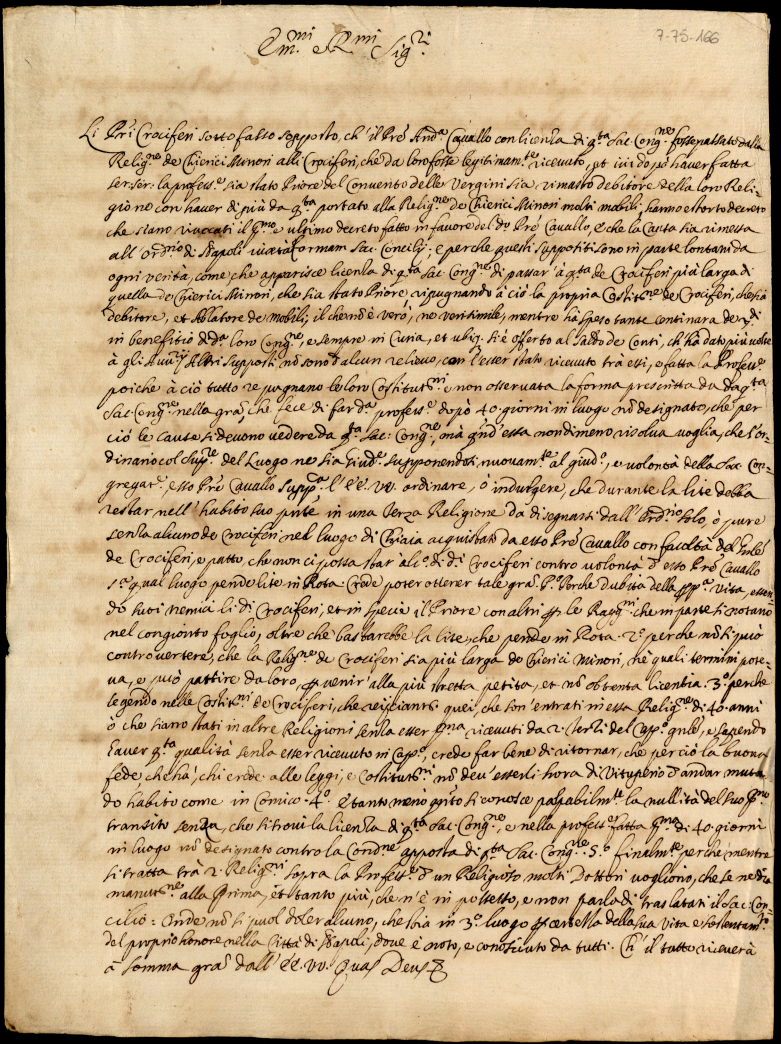 7-75-166
Em.mi e R.mi Sig.ri
Li Pri Crociferi sotto falso sopposto, ch'il Pre And.a Cavallo con licenza di q.ta Sac. Cong.ne fosse passato dalla
Relig.ne de Chierici Minori alli Crociferi, che da loro fosse legitimam.te ricevuto, et ivi dopò haver fatta
la profess.e sia stato Priore del Convento delle Vergini sia rimasto debitore della loro Reli-
gione con haver di più da q.ta portato alla Relig.ne de Chierici Minori molti mobili, hanno estorto decreto
che siano rivocati il p.mo e ultimo decreto fatto in favore del do Pre Cavallo, e che la Causa sia rimessa
all'ord.rio di Napoli iuxta formam Sac. Concilij; e perche questi suppositi sono in parte lontani da
ogni verità, come che apparisce licenza di q.ta Sac. Cong.ne di passar' à q.ta de Crociferi più larga di
quella de Chierici Minori, che sia stato Priore ripugnando à ciò la propria Costit.ne de Crociferi, che sia
debitore, et Ablatore de mobili; il che nō è vero, ne verisimile, mentre hà speso tante centinara de
in beneficio d.da loro Cong.ne, e sempre in Curia, et ubiq. si è offerto al Saldo de Conti, ch'hà dato più volte
à gli Altri supposti nō sono d'alcun relievo, con l'esser stato ricevuto trà essi, e fatta la Profess.e
poiche à ciò tutto repugnano le lor Costituts.ni e non osservata la forma prescritta da da q.ta
Sac. Cong.ne nella gra, che fece di far da profess.e dopò 40. giorni in luogo nō designato, che per
ciò le cause si devono vedere da q.ta Sac. Cong.ne, mà qnd'essa nondimeno risolva voglia, che l'or-
dinario col Supp.e del Luogo ne sia giud.e supponendosi nuovam.te al giud.o, e volontà della Sac. Con-
gregat. esso Pre Cavallo supp.ca l'EE. VV. ordinare, ò indulgere, che durante la lite debba
restar nell'habito suo pnte in una Terza Religione da disegnarsi dall'Ord.rio solo, ò pure
senza alcuno de Crociferi nel luogo di Chiaia acquistato da esso Pre Cavallo con facoltà del Gnle
de Crociferi, e patto, che non ci possa star alc.o di di Crociferi contro volontà d'esso Pre Cavallo
qual luogo pende lite in Rota. Crede poter ottener tale gra. P.o Perche dubita della ppa vita, essen-
do suoi nemici li di Crociferi, et in specie il Priore con altri p le Ragg.ni che in parte si notano
nel congionto foglio, oltre che bastarebbe la lite, che pende in Rota. 2.o perche nō si può
controvertere, che la Relig.ne de Crociferi sia più larga de Chierici Minori, nè quali termini pote-
va, e può partire da loro, p venir' alla più stretta petita, et nō obtenta licentia. 3.o perche
legendo nelle Costit.ni de Crociferi, che rejiciantr quei, che son'entrati in essa Relig.ne di 40. anni
ò che siano stati in altre Religioni senza esser pma ricevuti da 2. terzi del Cap.o gnle, e sapendo
haver q.ta qualità senza esser ricevuto in Capp.o, crede far bene di ritornar, che perciò la buona
fede che hà, chi crede alle leggi, e Costituts.ni nō deu' esserli hora di Vituperio d'andar mutan-
do habito come in Comico. 4.o E tanto meno qnto si conosce palpabilm.te la nullità del suo p.mo
transito senza, che si trovi la licenza di q.ta Sac. Cong.ne, e nella profess.e fatta p.ma di 40. giorni
in luogo nō designato contro la Cond.ne apposta da q.ta Sac. Cong.ne. 5.o Finalm.te perche mentre
si tratta trà 2. Relig.ni sopra la Profess.e d'un Religioso molti Dottori vogliono, che se ne dia
manuts.ne alla Prima, et tanto più, che n'è in possesso, e non parla di traslatati il Sac. Con-
cilio: Onde nō si puol doler alcuno, che stia in 3.o luogo p certezza della sua Vita e sostentam.to
del proprio honore nella Città di Napoli, dove è noto, e conosciuto da tutti. Ch'il tutto riceverà
à somma gra dall'EE. VV. Quas Deus &